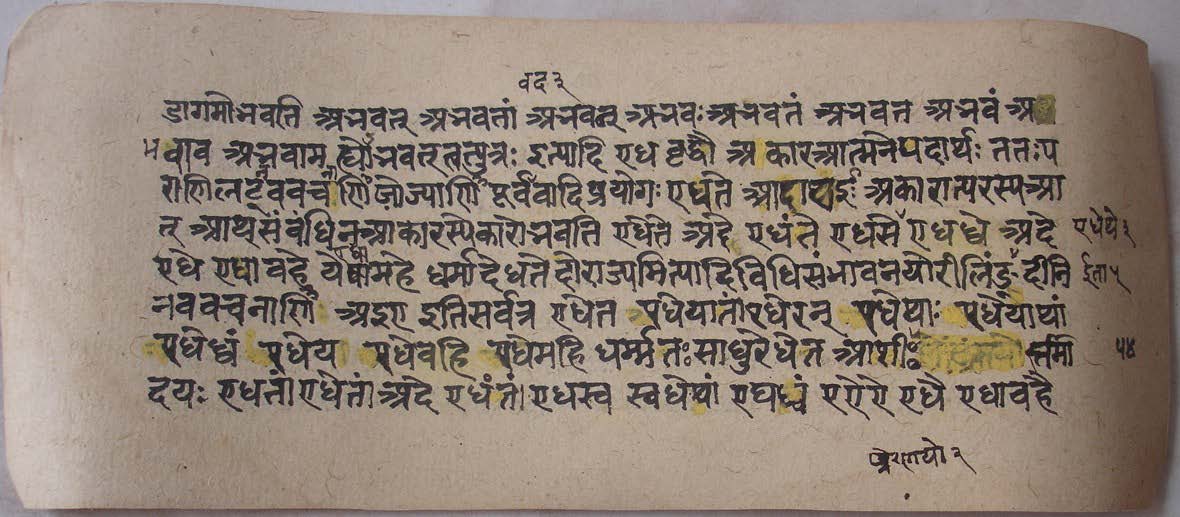 वद ३
डागमो भवति अभवत् अभवतां अभवन् अभवः अभवतं अभवत अभवं अ
भवाव अभवाम भवत् तत्पुत्रः इत्यादि एध वृद्धौ अकारआत्मनेपदार्थः ततः प
राणि नववचनानि योज्यानि पूर्ववदादिप्रयोगः एधते आदाथई अकारात्परस्य आ
त् आथ्संबंधिनआकारस्येकारो भवति एधेते अदे एधंते एधसे एधध्वे अदे
एधेथे ३
एधे एधावहे एधामहे धर्मादेधते दौराज्यमित्यादि विधिसंभावनयोरीलिंङ्दीनि
ईता ५
नववचनानि अइए इति सर्वत्र एधेत एधेयातां एधेरन् एधेथाः एधेयाथां
एधेध्वं एधेय एधेवहि एधेमहि धर्म्मतः साधुरेधेत आशीः तमा
५४
दयः एधतां एधेतां अदे एधंतां एधस्व एधेथां एधध्वं एऐऐ एधै एधावहै
प्रेरणयो ३